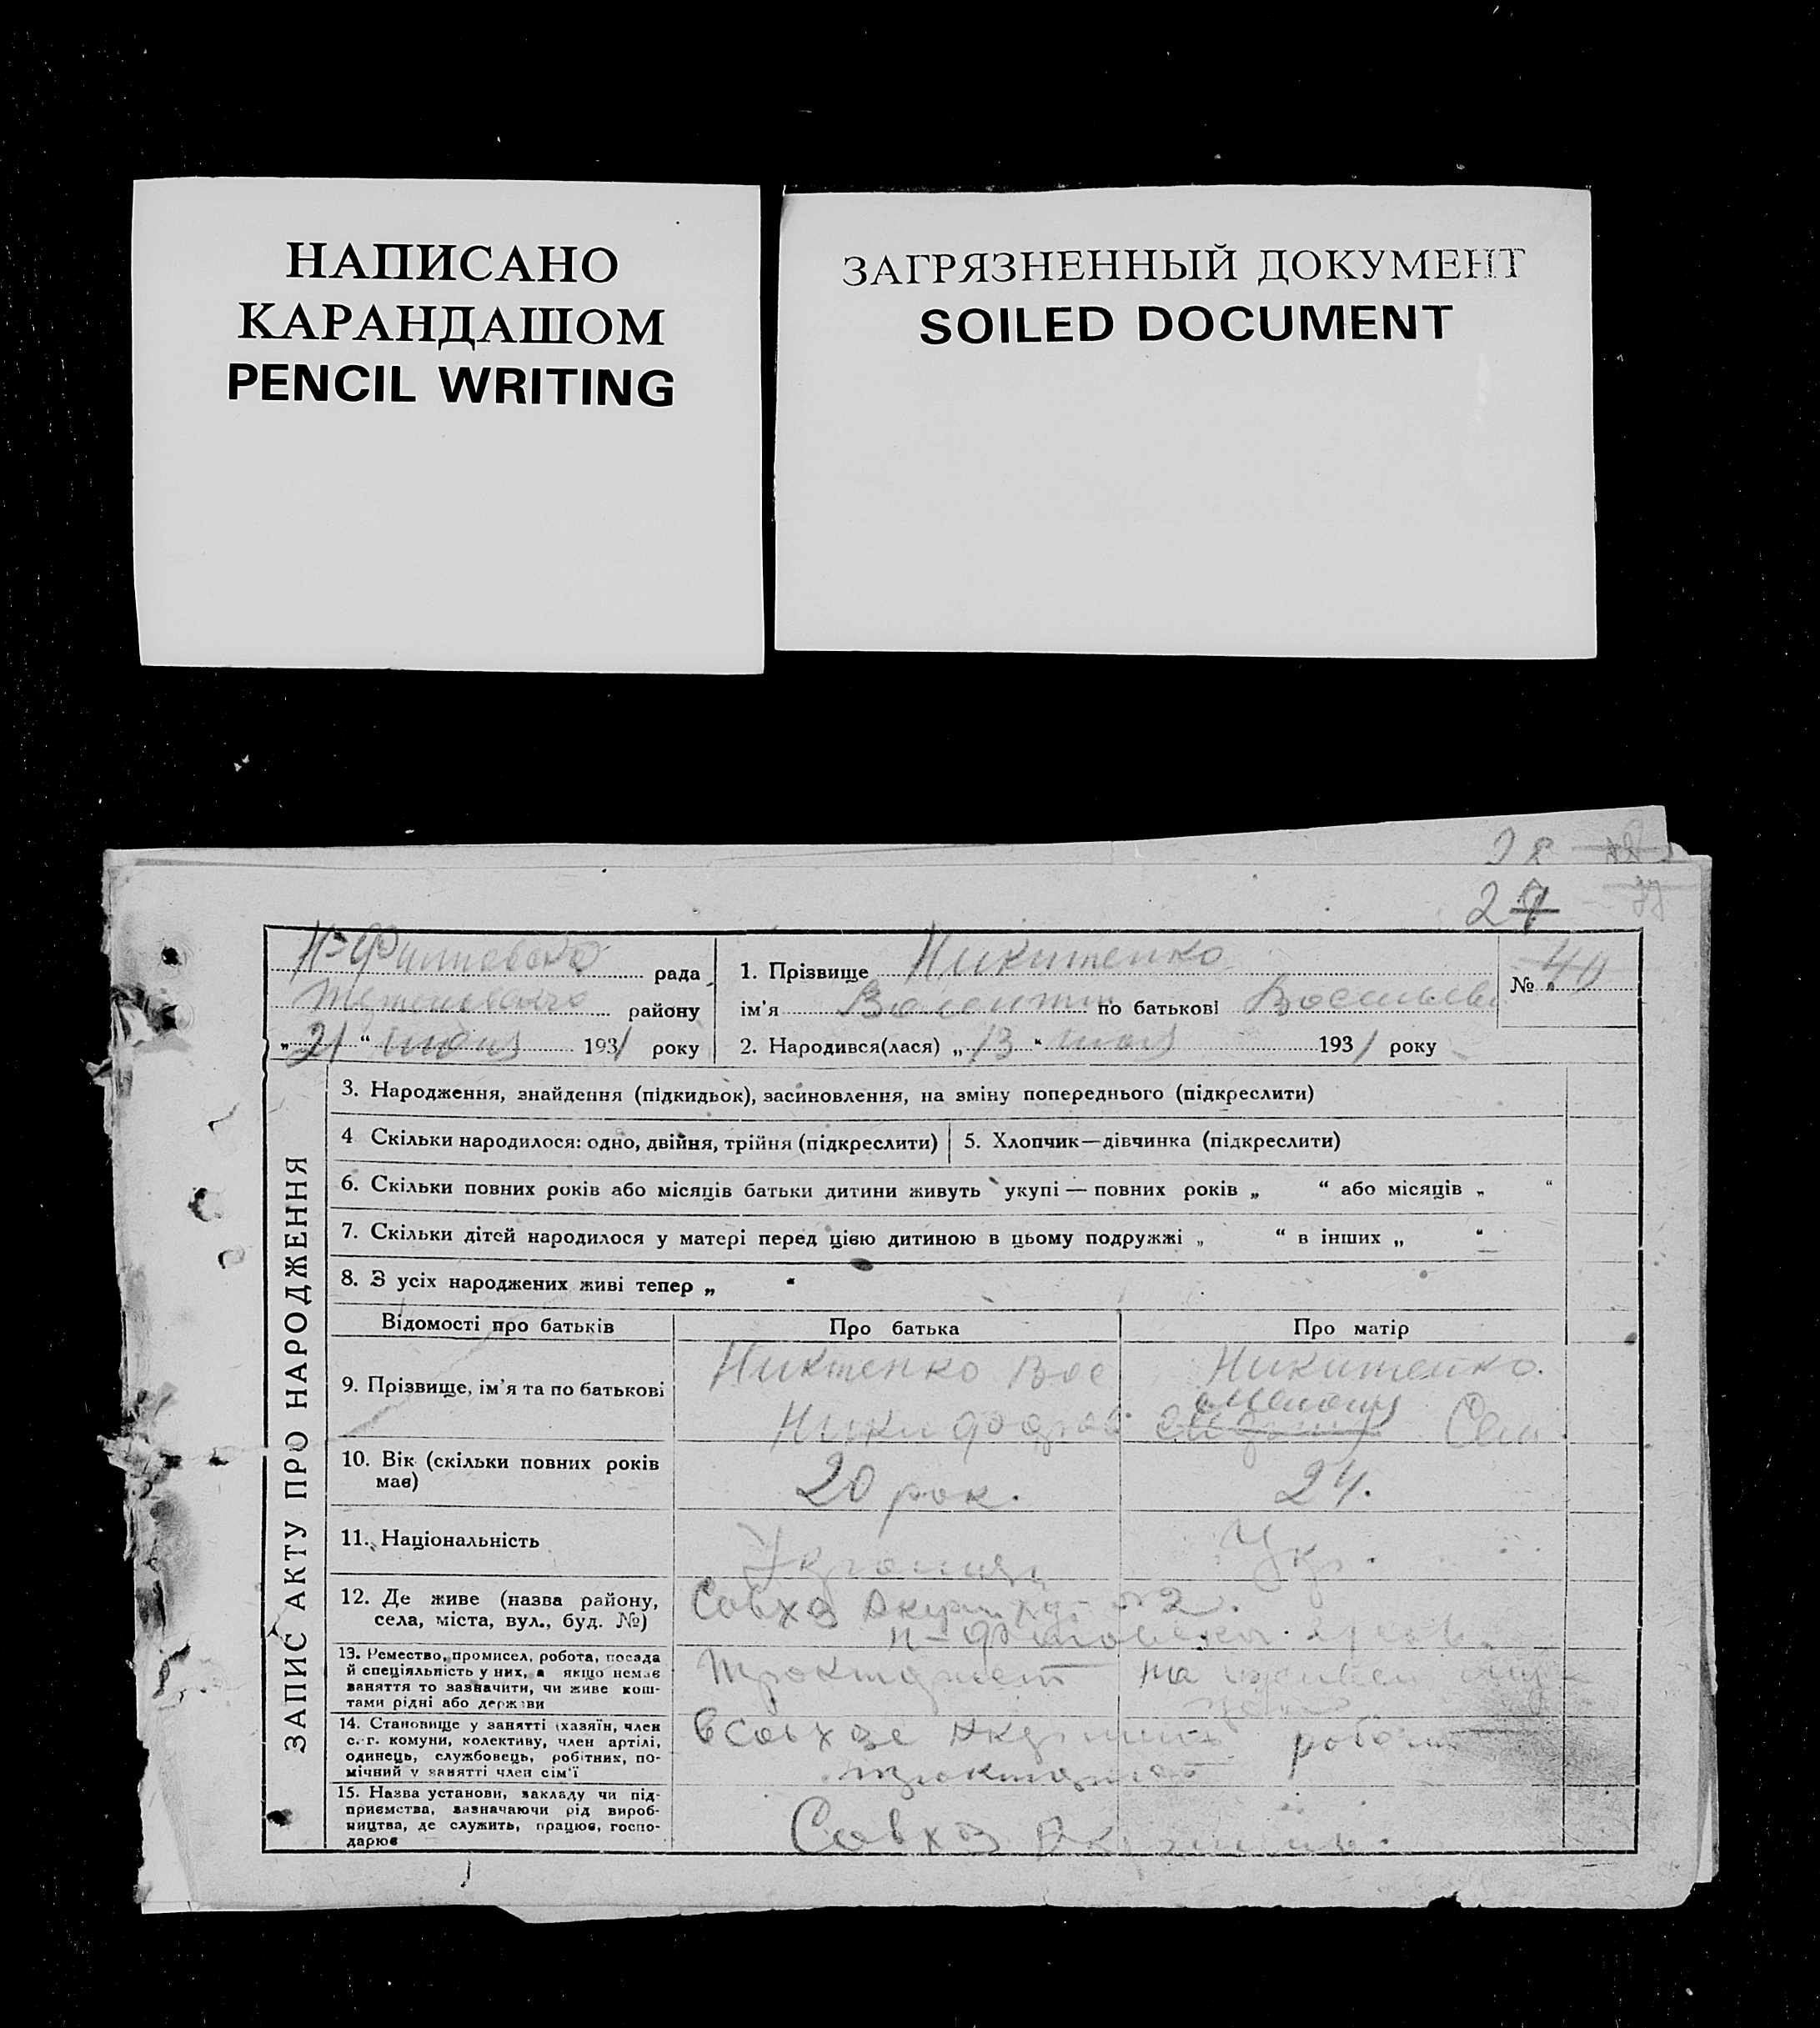 НАПИСАНО
КАРАНДАШОМ
PENCIL WRITING
ЗАГРЯЗНЕННЫЙ ДОКУМЕНТ
SOILED DOCUMENT
28
27
рада
району
„21“ июня 1931 року
1. Прізвище Никитенко
ім'я Валентин по батькові
2. Народився(лася) „13“ июня 1931 року
№ 40
ЗАПИС АКТУ ПРО НАРОДЖЕННЯ
3. Народження, знайдення (підкидьок), засиновлення, на зміну попереднього (підкреслити)
4 Скільки народилося: одно, двійня, трійня (підкреслити)
5. Хлопчик—дівчинка (підкреслити)
6. Скільки повних років або місяців батьки дитини живуть укупі — повних років „ “ або місяців „ “
7. Скільки дітей народилося у матері перед цією дитиною в цьому подружжі „ “ в інших „ “
8. З усіх народжених живі тепер „ “
Відомості про батьків
Про батька
Про матір
9. Прізвище, ім'я та по батькові
Никтенко Вас
Никифоров
Никитенко.
10. Вік (скільки повних років має)
20 рок.
24.
11. Національність
Укр.
12. Де живе (назва району,
села, міста, вул., буд. №)
Совхоз
13. Ремество, промисел, робота, посада
й спеціяльність у них, а якщо немає
заняття то зазначити, чи живе кош-
тами рідні або держави
Тракторист
на
14. Становище у занятті (хазяїн, член
с.-г. комуни, колективу, член артілі,
одинець, службовець, робітник, по-
мічний у занятті член сім'ї
в совхозе
тракторист
15. Назва установи, закладу чи під-
приємства, зазначаючи рід вироб-
ництва, де служить, працює, госпо-
дарює
Совхоз